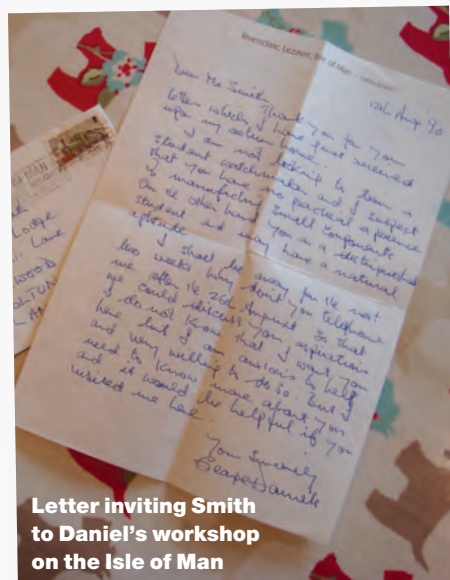 Riversdale, Lezayre, Isle of Man
12th Aug 90
Dear Mr Smith, Thank you for your
letter which I have just received
upon my return home.
I am not looking to train a
student watchmaker and I suspect
that you have no practical experience
of manufacturing small components
On the other hand you are a distinguished
student and may have a natural
aptitude
I shall be away for the next
two weeks why don't you telephone
me after the 26th August so that
we could discuss your aspirations
I do not know that I want you
here but I am anxious to help
and very willing to do so. But I
need to know more about you
and it would be helpful if you
visited me here.
Yours Sincerely
George Daniels
OF MAN
Lodge
Lane
WOOD
BOLTON
Letter inviting Smith
to Daniel's workshop
on the Isle of Man